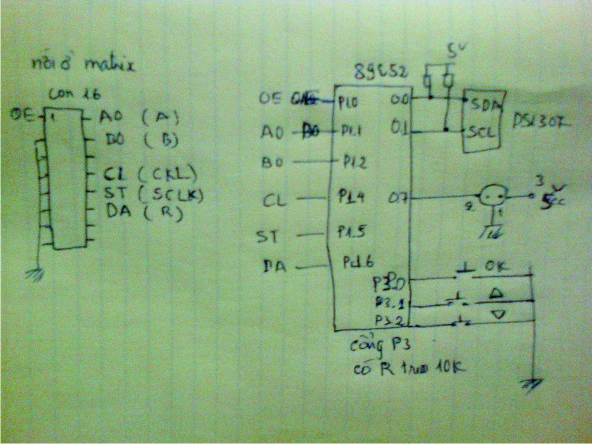 nối ở matrix
con 16
OE 1 A0 (A)
B0 (B)
CL (CKL)
ST (SCLK)
DA (R)
89C52
5V
OE P1.0 00 SDA
A0 B0 P1.1 01 SCL
DS1307
B0 P1.2
CL P1.4 07 2 1 3 5Vcc
ST P1.5
DA P1.6
P3.0 OK
P3.1
P3.2
cổng P3
có R treo 10K